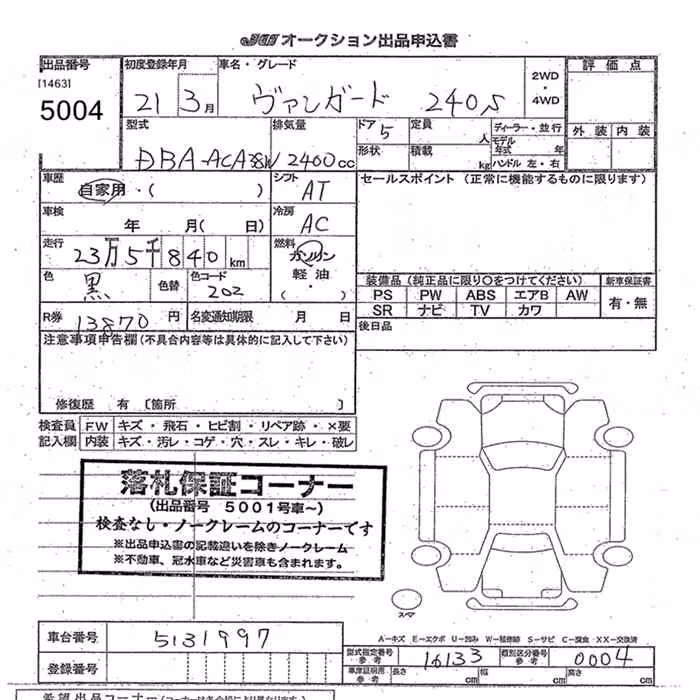 JU オークション出品申込書
出品番号 初度登録年月 車名・グレード 2WD ・ 4WD 評価点
[1463]
5004 21 3月 ヴァンガード 240S
型式 排気量 ドア 5 定員 人 ディーラー・並行 外装 内装
DBA-ACA38W 2400cc 形状 積載 kg モデル年式 年 ハンドル 左・右
車歴 自家用・( ) シフト AT セールスポイント (正常に機能するものに限ります)
車検 年 月( 日) 冷房 AC
走行 23万5千840km 燃料 ガソリン 軽油 ・( )
色 黒 色替 色コード 202 装備品 (純正品に限り○をつけてください) 新車保証書
PS PW ABS エアB AW 有・無
SR ナビ TV カワ
R券 13870円 名変通知期限 月 日 後日品
注意事項申告欄(不具合内容等は具体的に記入して下さい)
修復歴 有 〔箇所 〕
検査員 FW キズ・飛石・ヒビ割・リペア跡・×要
記入欄 内装 キズ・汚レ・コゲ・穴・スレ・キレ・破レ
落札保証コーナー
(出品番号 5001号車~)
検査なし・ノークレームのコーナーです
※出品申込書の記載違いを除きノークレーム
※不動車、冠水車など災害車も含まれます。
スペア
A-キズ E-エクボ U-凹み W-補修跡 S-サビ C-腐食 XX-交換済
車台番号 5131997 型式指定番号 参考 16133 類別区分番号 参考 0004
登録番号 車庫証明用 参考 長さ cm 幅 cm 高さ cm
希望出品コーナー